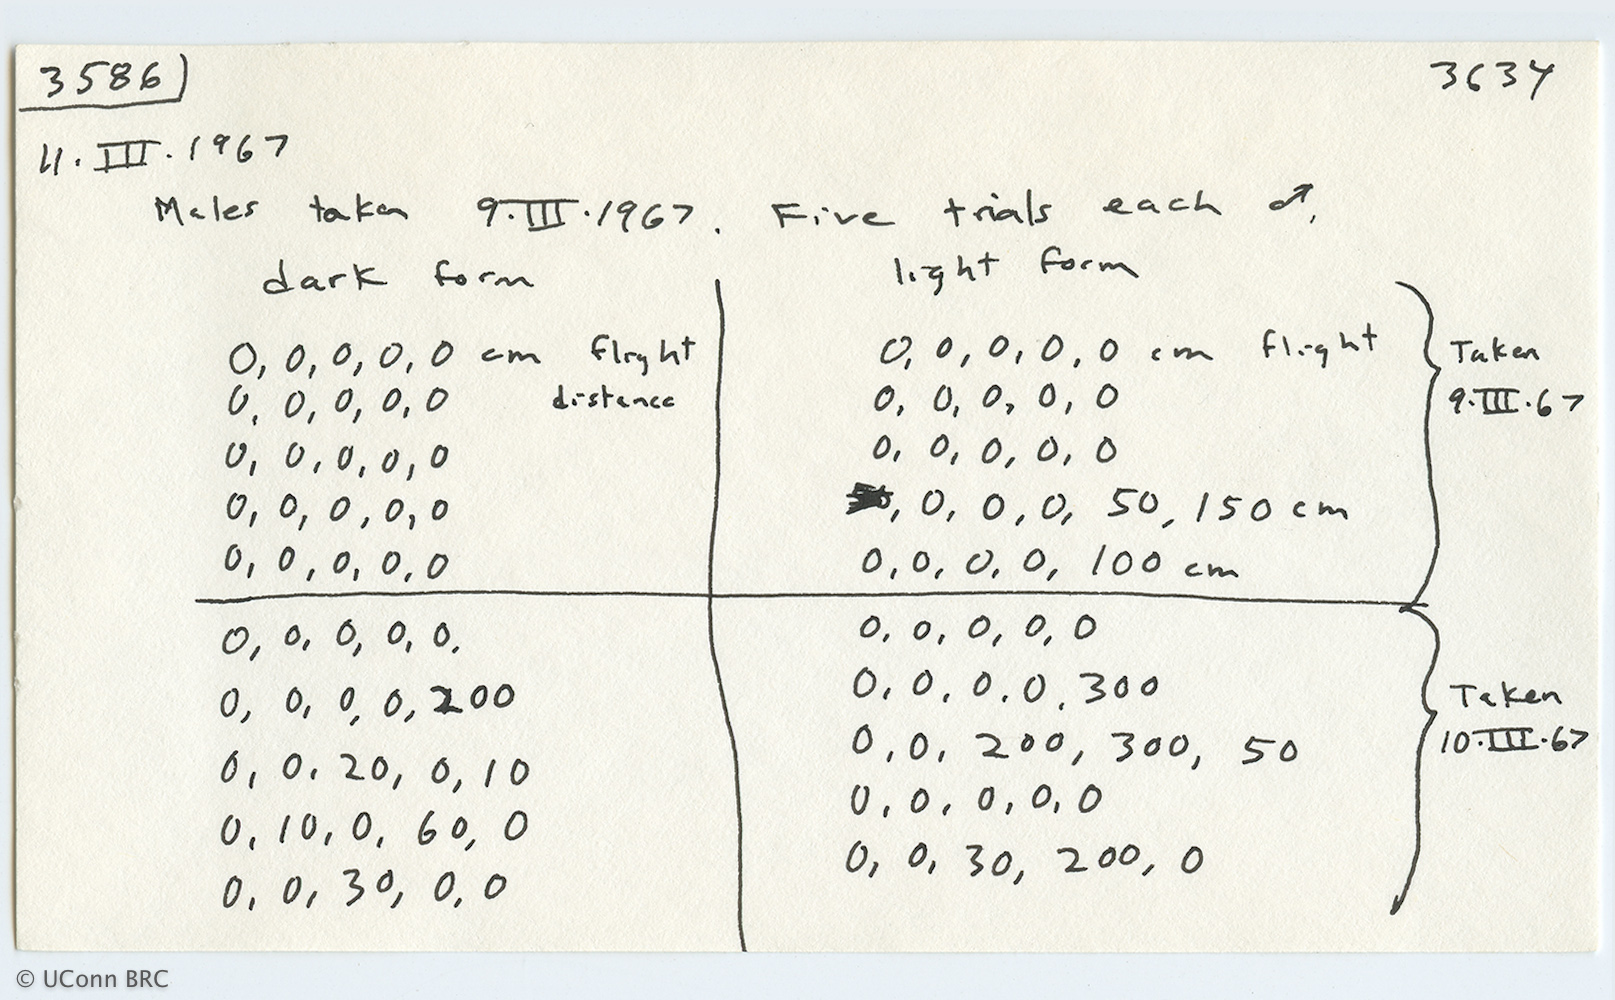 3586) 3634
11.III.1967
Males taken 9.III.1967. Five trials each ♂.
dark form light form
0, 0, 0, 0, 0 cm flight 0, 0, 0, 0, 0 cm flight Taken
0, 0, 0, 0, 0 distance 0, 0, 0, 0, 0 9.III.67
0, 0, 0, 0, 0 0, 0, 0, 0, 0
0, 0, 0, 0, 0 , 0, 0, 0, 50, 150 cm
0, 0, 0, 0, 0 0, 0, 0, 0, 100 cm
0, 0, 0, 0, 0. 0, 0, 0, 0, 0
0, 0, 0, 0, 200 0, 0, 0, 0, 300 Taken
0, 0, 20, 0, 10 0, 0, 200, 300, 50 10.III.67
0, 10, 0, 60, 0 0, 0, 0, 0, 0
0, 0, 30, 0, 0 0, 0, 30, 200, 0
© UConn BRC